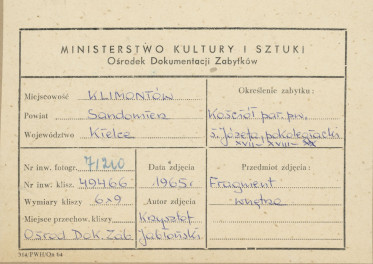 MINISTERSTWO KULTURY I SZTUKI
Ośrodek Dokumentacji Zabytków
Miejscowość KLIMONTÓW
Powiat Sandomierz
Województwo Kielce
Określenie zabytku:
Kościół par. p.w.
ś. Józefa, pokolegiacki
XVII - XVIII - XX
Nr inw. fotogr. 71210
Nr inw. klisz. 49466
Wymiary kliszy 6x9
Miejsce przechow. kliszy
Ośrod Dok. Zab
Data zdjęcia
1965 r
Autor zdjęcia
Krzysztof
Jabłoński
Przedmiot zdjęcia:
Fragment
wnętrza